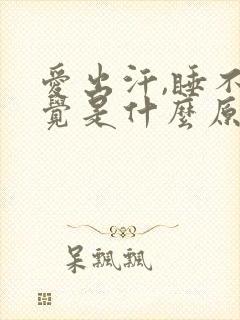 愛出汗,睡不
覺是什麼原
呆飄飄